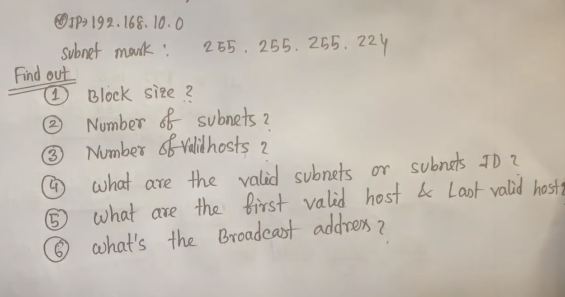 IP→192.168.10.0
Subnet mask : 255.255.255.224
Find out
① Block size ?
② Number of subnets ?
③ Number of Valid hosts ?
④ what are the valid subnets or subnets ID ?
⑤ what are the first valid host & Last valid host?
⑥ what's the Broadcast address ?